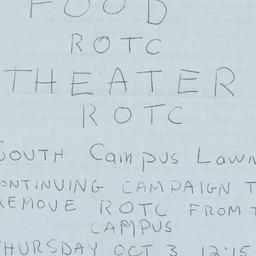 FOOD
ROTC
THEATER
ROTC
SOUTH Campus Lawn
CONTINUING CAMPAIGN T
REMOVE ROTC FROM T
CAMPUS
THURSDAY OCT 3 12:15